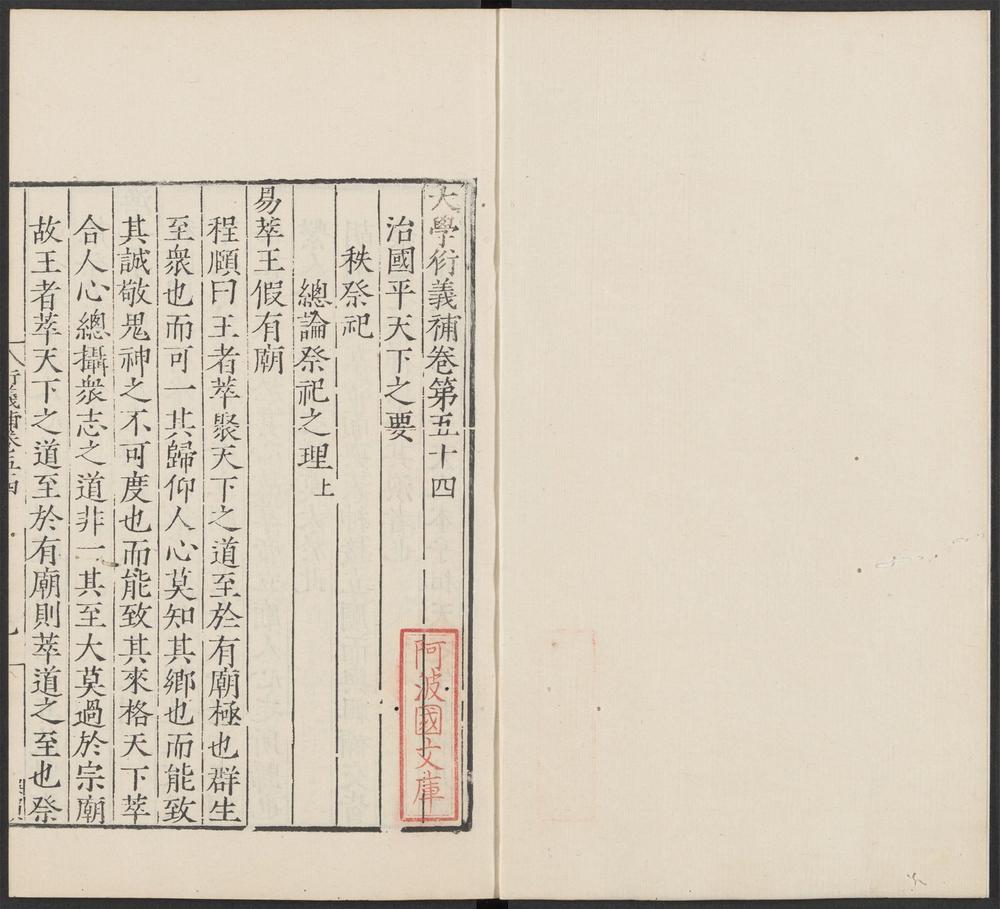 大學衍義補卷第五十四
治國平天下之要
秩祭祀
總論祭祀之理上
易萃王假有廟
程頤曰王者萃聚天下之道至於有廟極也群生
至衆也而可一其歸仰人心莫知其鄉也而能致
其誠敬鬼神之不可度也而能致其來格天下萃
合人心總攝衆志之道非一其至大莫過於宗廟
故王者萃天下之道至於有廟則萃道之至也祭
阿波國文庫